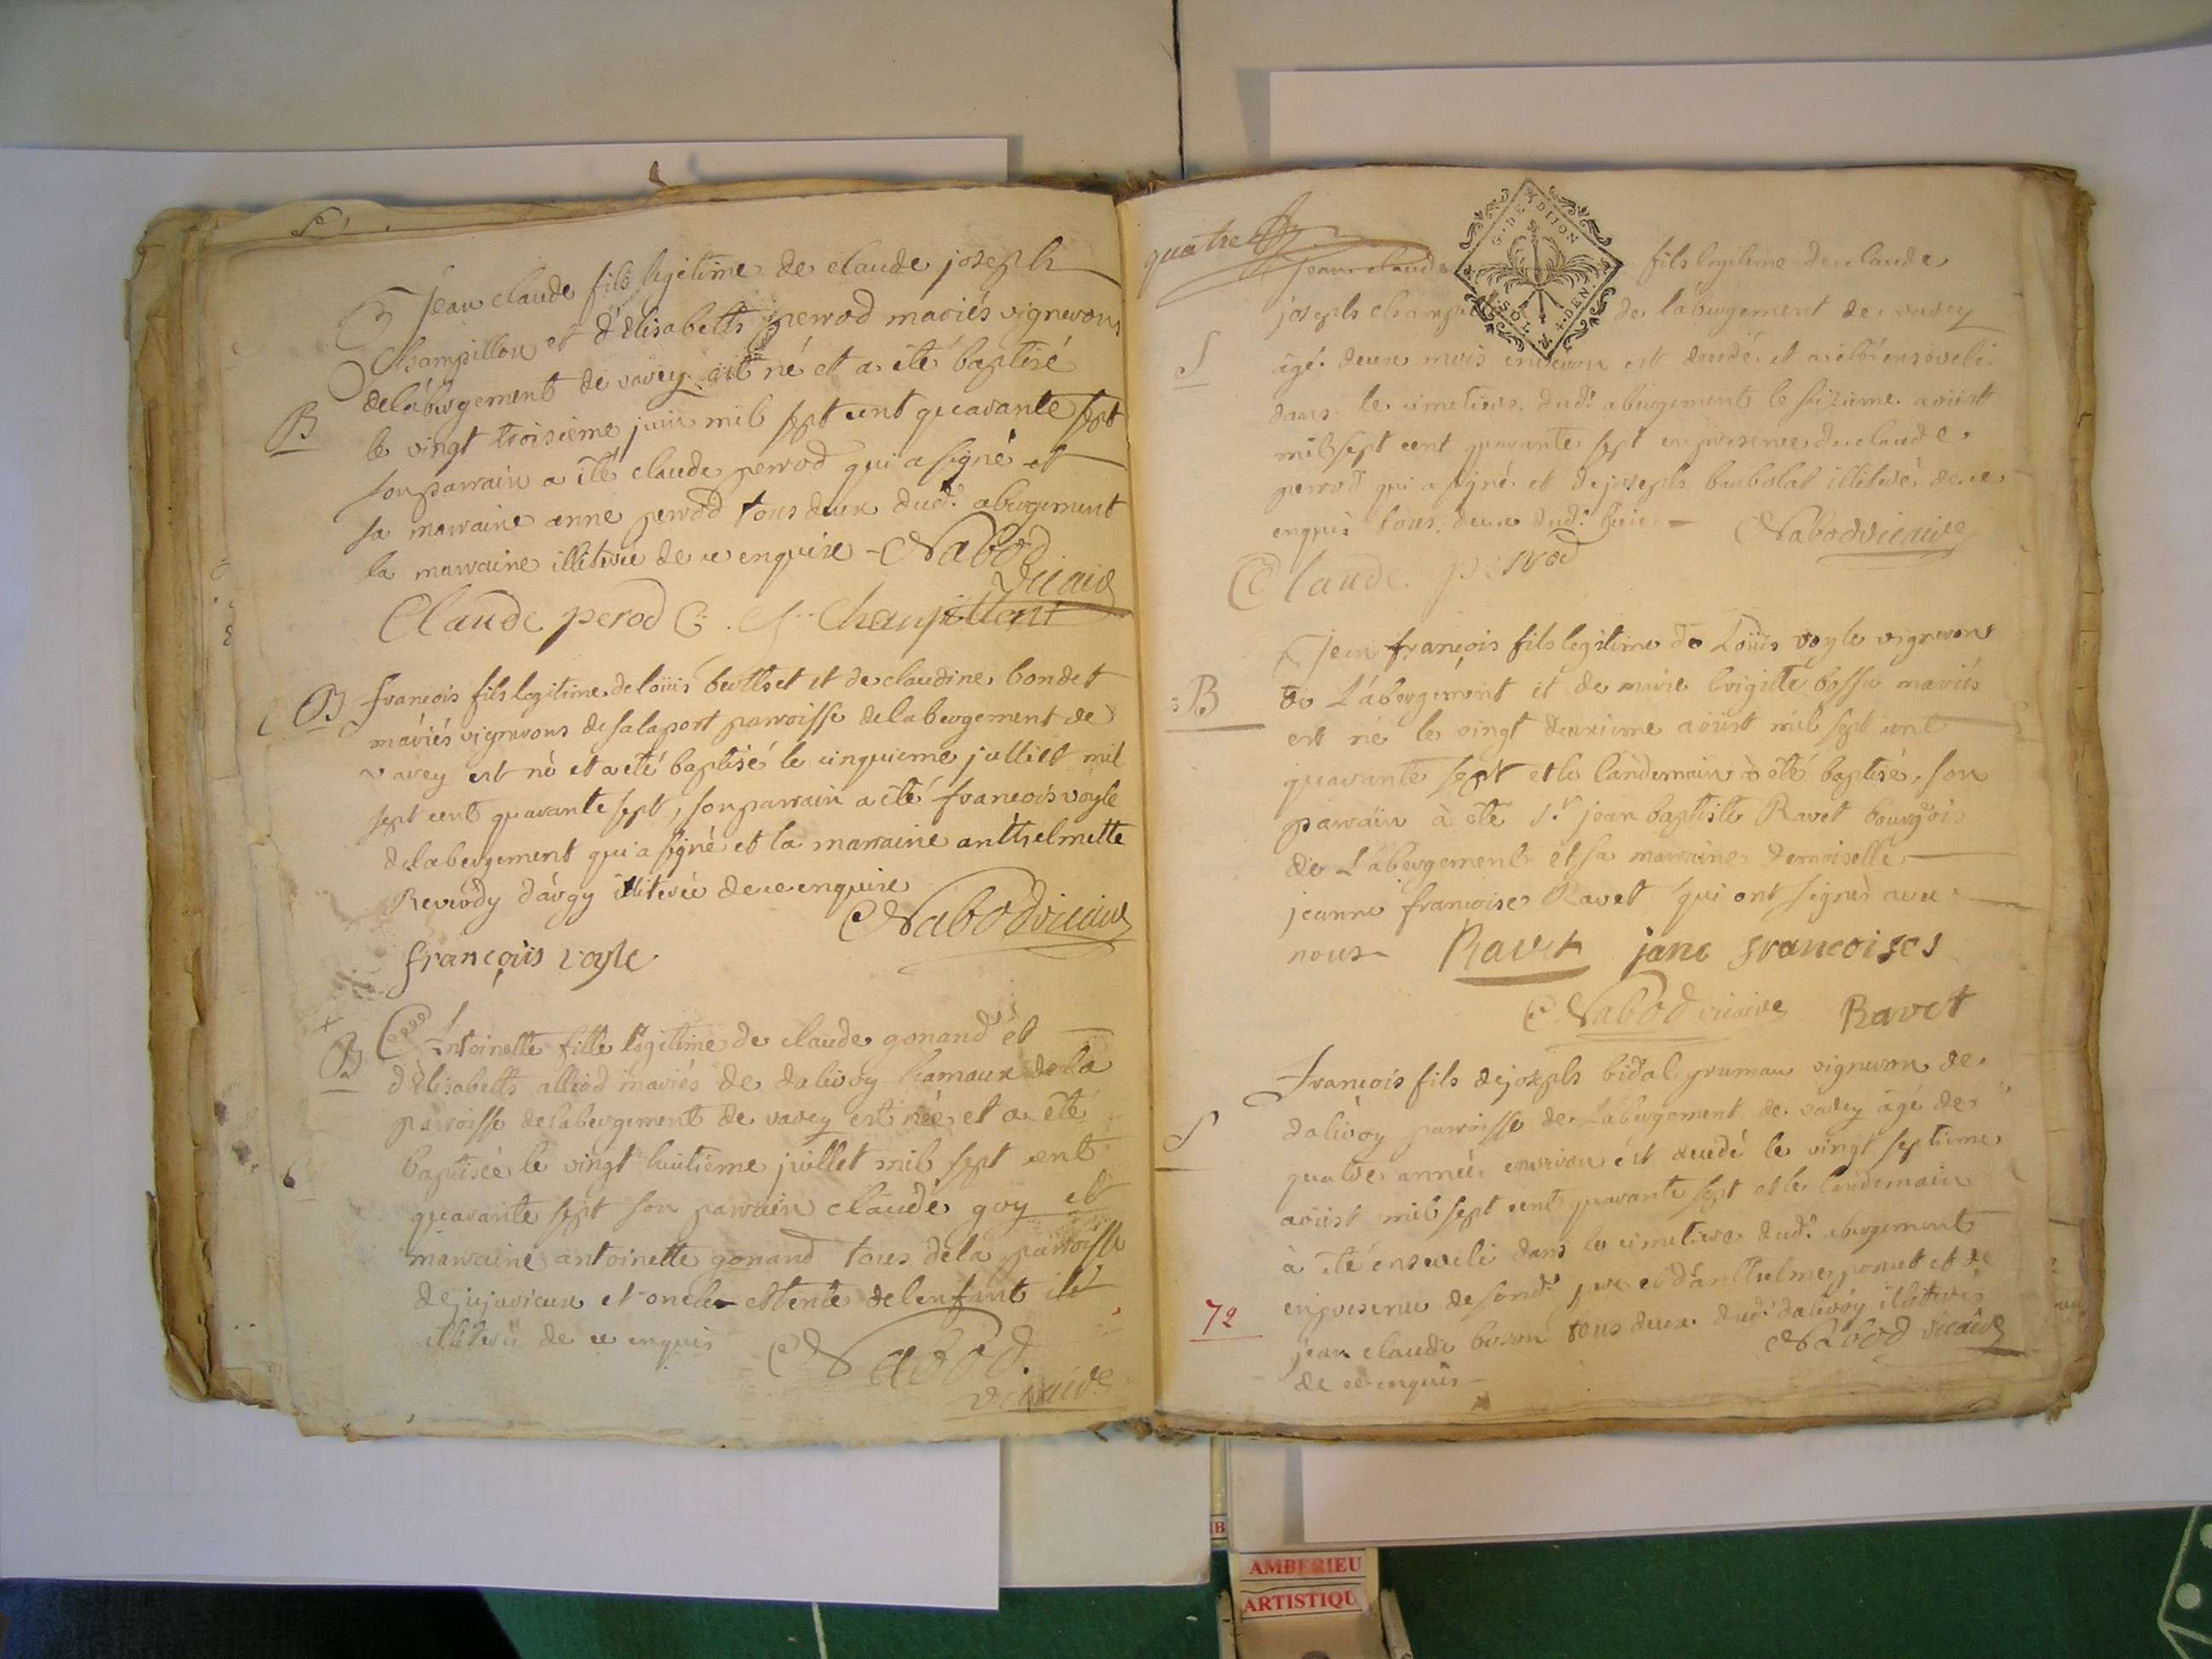 Jean claude fils legitime de claude joseph
Champillon et d'Elisabeth perrod mariés vignerons
delábergement de varey est né et a été baptisé
B
le vingt troisieme juin mil sept cent quarante sept
son parrain a été claude perrod qui a signé et
sa marraine anne perrod tous deux dud.t abergement
la marraine illiterée de ce enquise - Nabod
vicaire
Claude perod C. J. Champillont
B
francois fils legitime de loüis berthet et de claudine bondet
máriés vignerons de salaport parroisse delabergement de
varey est né et a eté baptisé le cinquieme julliet mil
sept cent quarante sept, son parrain a été francois voyle
delabergement qui a signé et la marraine anthelmette
Reverdy d'árgy illiterée de ce enquise
Nabod vicaire
françois voyle
B
Antoinette fille légitime de claude gonand et
d'Elisabeth alliod mariés de dalivoy hamaux de la
parroisse delabergement de varey est née et a été
baptisée le vingt huitieme juillet mil sept cent
quarante sept son parrain claude goy et
marraine antoinette gonand tous de la parroisse
de jujurieux et oncle et tente de lenfant
illiterés de ce enquis
Nabod
vicaire
quatre
G. DE DIJON
SOLS 4. DEN.
Jean claude fils legitime de claude
joseph champillon de lábergement de varey
S
agé deux mois environ est decedé et a été enseveli
dans le cimetiere dud.t abergement le seizieme aoüst
mil sept cent quarante sept en presence de claude
perrod qui a signé et de joseph barbolat illiteré de ce
enquis tous deux dud.t lieu - Nabod vicaire
Claude perrod
Jean françois fils legitime de Loüis voyle vigneron
B
de L'ábergement et de marie brigitte bossu mariés
est né le vingt deuxieme aoüst mil sept cent
quarante sept et le landemain à été baptisé, son
parrain à été S.r jean baptiste Ravet bourgois
de L'abergement et sa marraine demoiselle
jeanne francoise Ravet qui ont signés avec
nous - Ravet jane francoises
Nabod vicaire Ravet
francois fils de joseph bidal grumau vigneron de
dalivoy parroisse de Labergement de varey agé de
S
quatre années environ est decedé le vingt septieme
aoüst mil sept cent quarante sept et le landemain
à été enseveli dans le cimetiere dud.t abergement
en presence de sond.t pere et d'anthelme poncet et de
72
jean claude boson tous deux dud.t dalivoy illiterés
de ce enquis - Nabod vicaire
AMBERIEU
ARTISTIQU